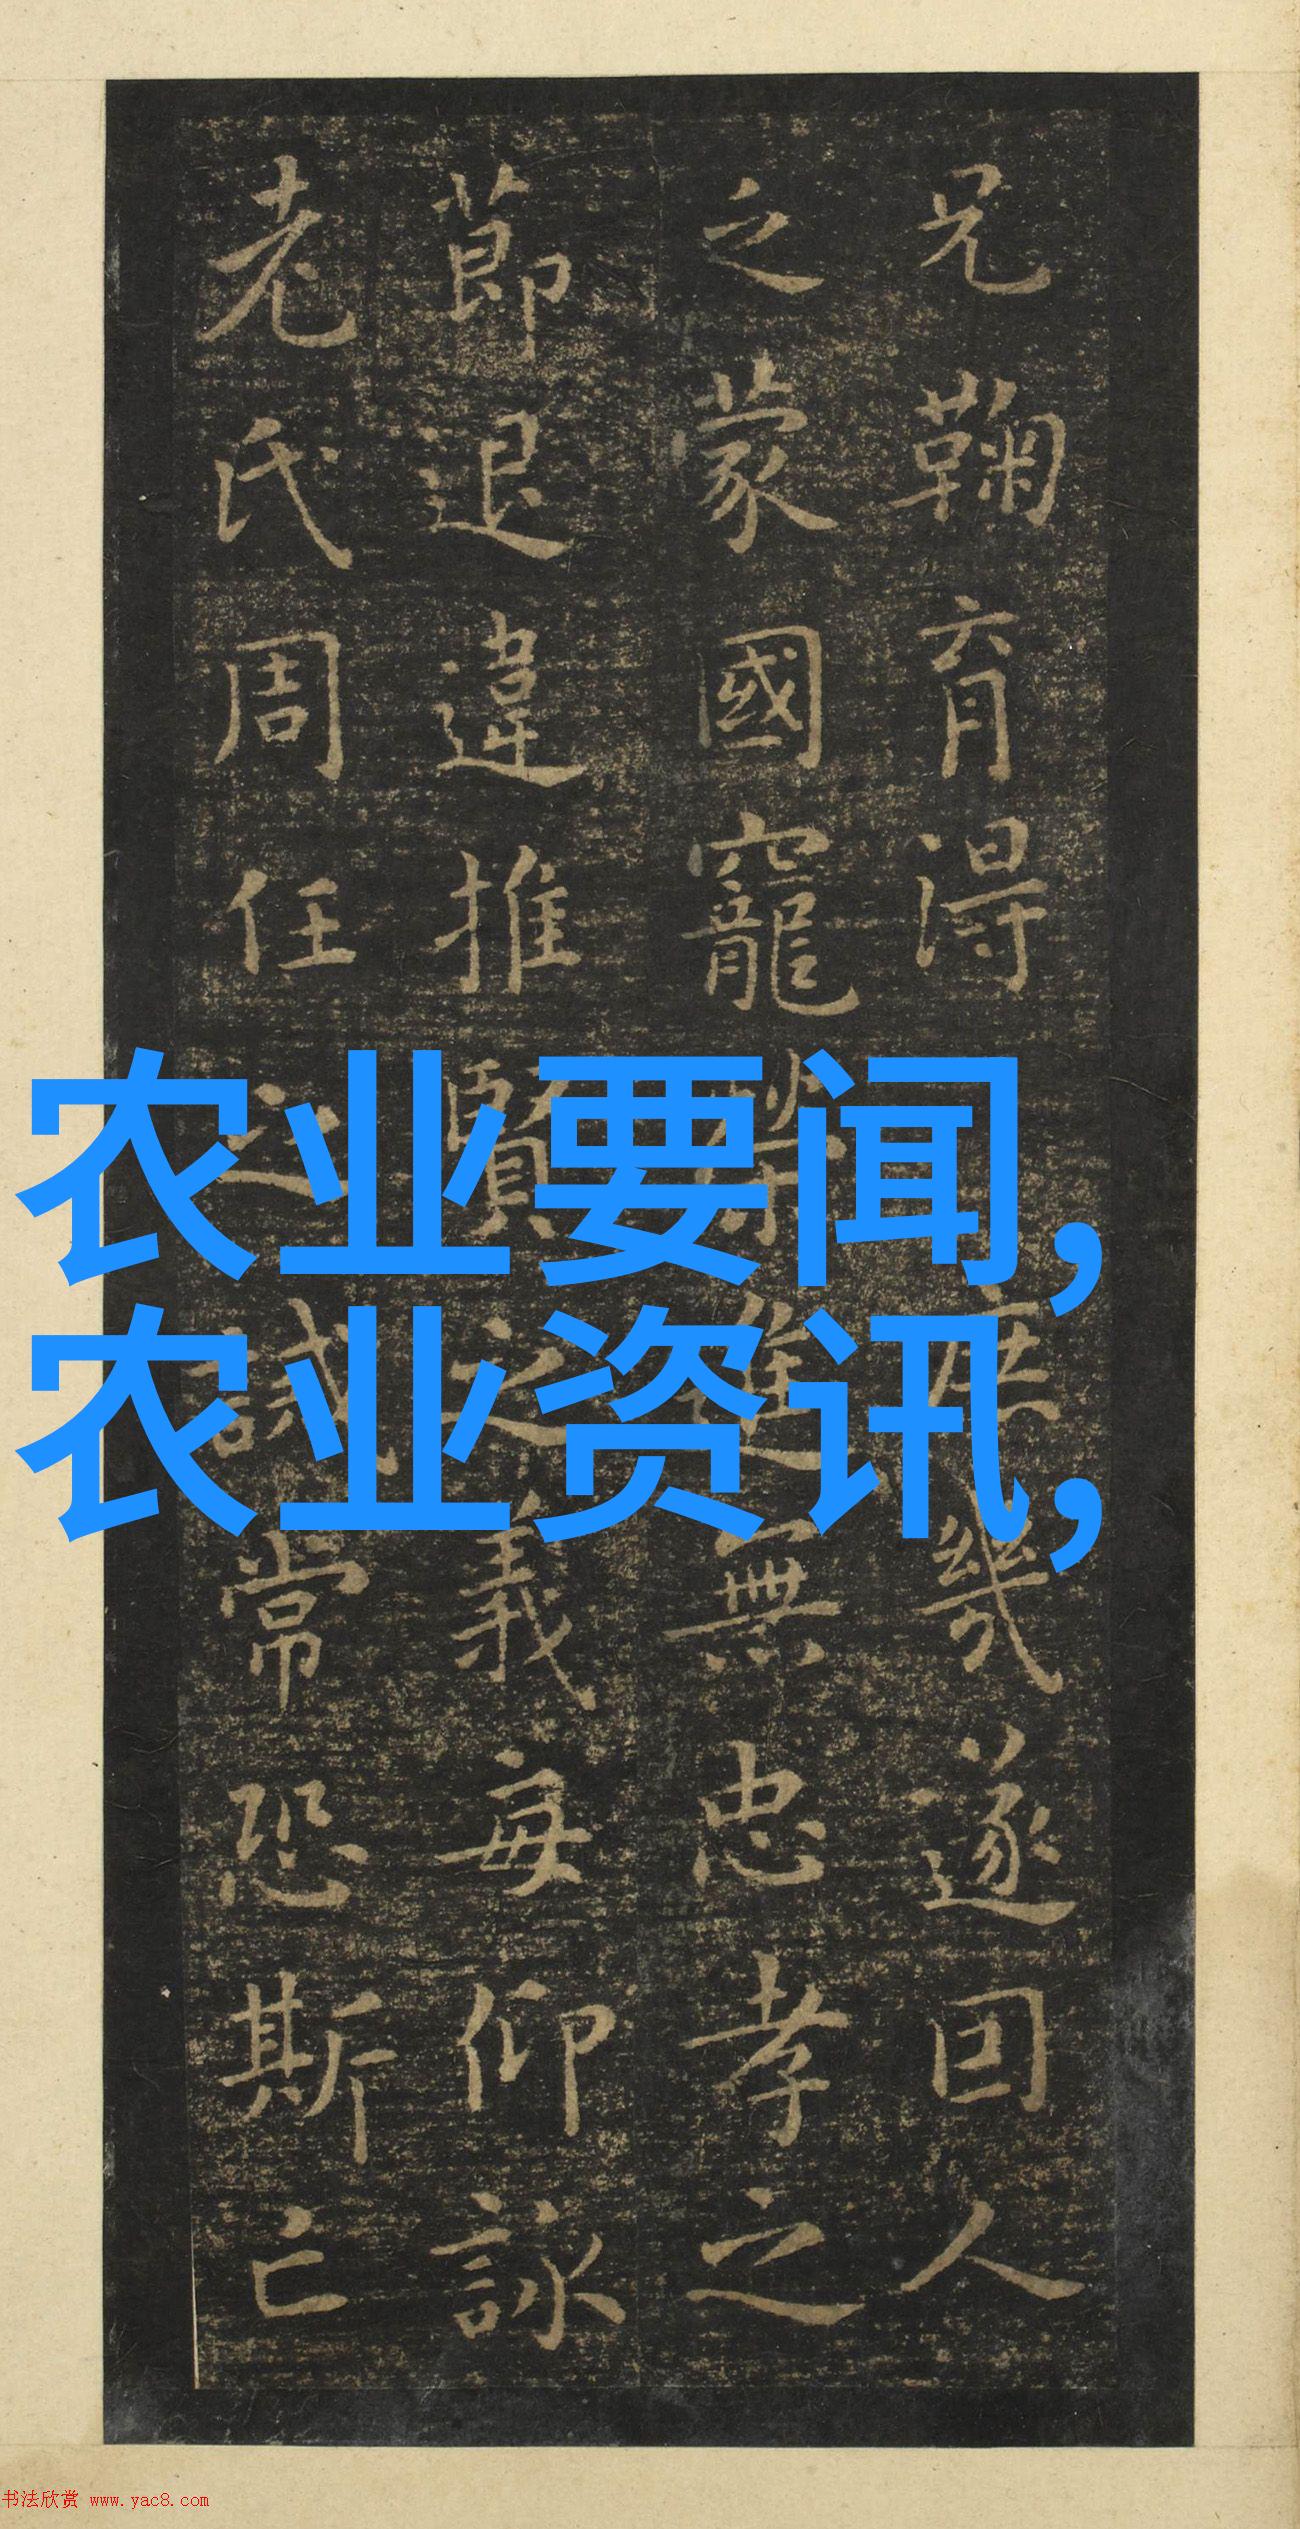 兄鞠育得庶幾遂因人
之蒙國寵榮進無忠孝之
節退違推賢之義每仰詠
老氏周任之誡常恐斯亡
农业要闻,
农业资讯,
书法欣赏 www.yac8.com